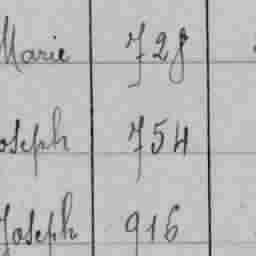 Marie 728
oseph 754
Joseph 916